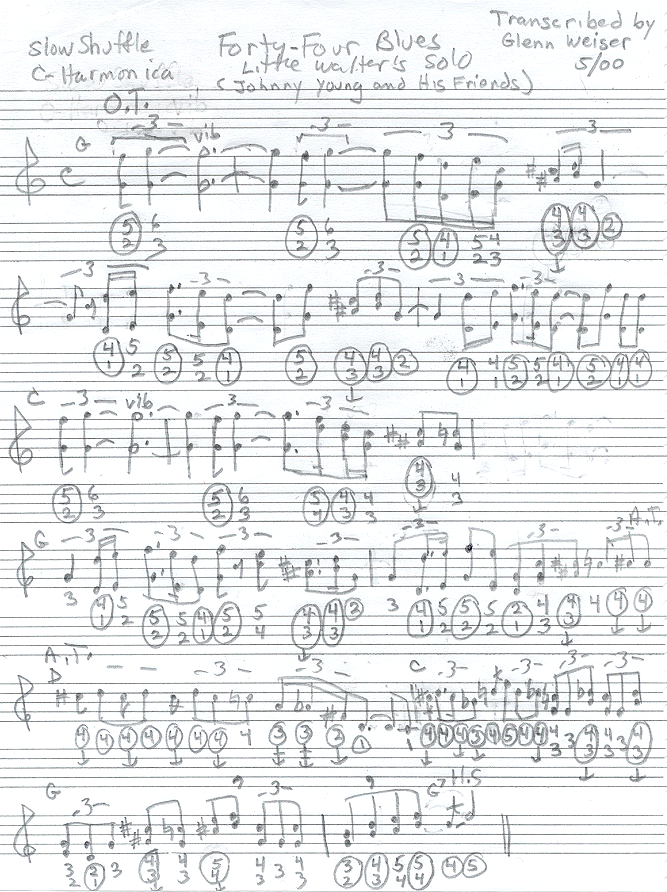 Transcribed by
Slow Shuffle Forty-Four Blues Glenn Weiser
C-Harmonica Little Walter's Solo 5/00
(Johnny Young and His Friends)
O.T.
-3- vib -3- -3- -3-
G
C
5 6 5 6 5 4 5 4 4 4 2
2 3 2 3 2 1 2 3 3 3
-3- -3- -3- -3- -3-
4 5 5 5 4 5 4 4 2 4 4 5 5 4 5 4 4
1 2 2 2 1 2 3 3 1 1 2 2 1 2 1 1
C -3- vib -3- -3-
5 6 5 6 5 4 4 4 4
2 3 2 3 4 3 3 3 3
G -3- -3- -3- -3- -3- -3- -3- A.T.
3 4 5 5 5 4 5 5 4 4 2 3 4 5 5 5 2 4 4 4 4 4
1 2 2 2 1 2 4 3 3 1 2 2 2 1 3 3
A.T.
D -3- -3- C -3- -3- -3- -3-
4 4 4 4 4 4 4 3 3 2 1 1 4 4 4 5 4 5 4 4 4 3 4 4 3 4
3 3 3 3
G -3- -3- G7 H.S
3 2 3 4 4 5 4 3 4 3 4 5 5 4 5
2 1 3 3 4 3 3 2 3 4 4